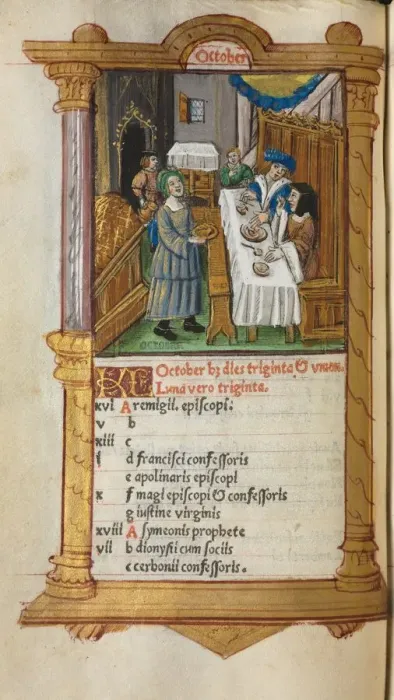 October
OCTOBER
KL October hꝫ dies triginta & vnum.
Luna vero triginta.
xvi A remigii. episcopi.
v b
xiii c
i d francisci confessoris
e apolinaris episcopi
x f magi episcopi & confessoris
g iustine virginis
xviii A symeonis prophete
vii b dionysii cum sociis
c cerbonii confessoris.